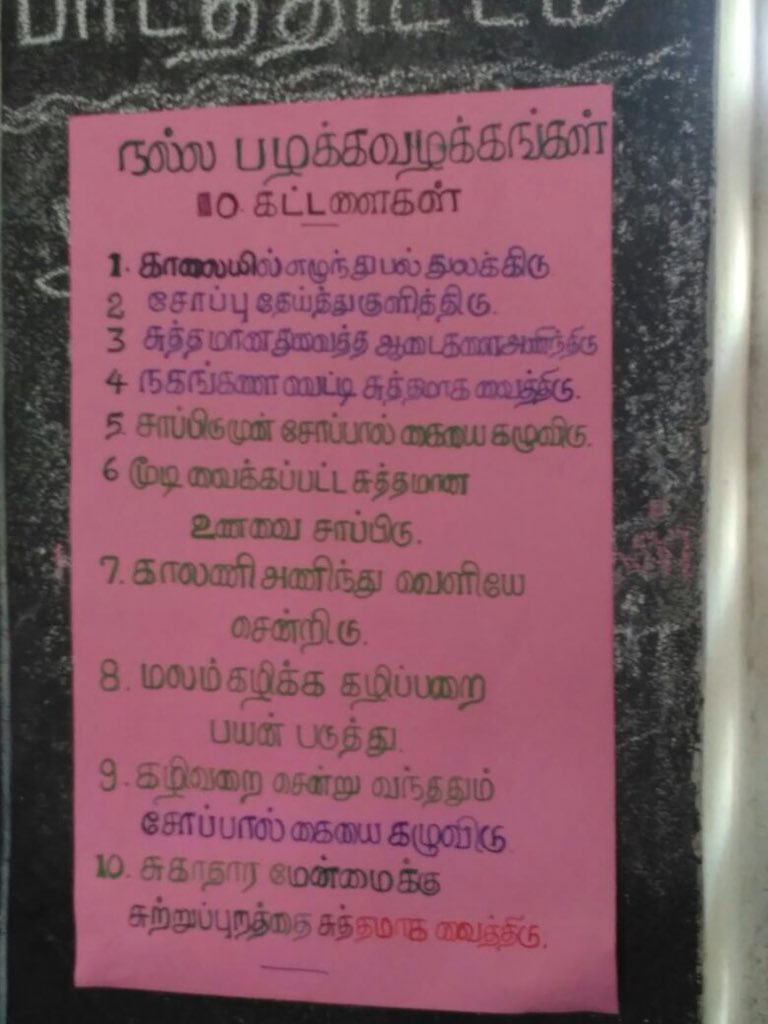 நல்ல பழக்கவழக்கங்கள்
10 கட்டளைகள்
1. காலையில் எழுந்து பல் துலக்கிடு
2 சோப்பு தேய்த்து குளித்திடு.
3 சுத்தமான துவைத்த ஆடைகளை அணிந்திடு
4 நகங்களை வெட்டி சுத்தமாக வைத்திடு.
5. சாப்பிடுமுன் சோப்பால் கையை கழுவிடு.
6 மூடி வைக்கப்பட்ட சுத்தமான
உணவை சாப்பிடு.
7. காலணி அணிந்து வெளியே
சென்றிடு.
8. மலம் கழிக்க கழிப்பறை
பயன் படுத்து.
9. கழிவறை சென்று வந்ததும்
சோப்பால் கையை கழுவிடு
10. சுகாதார மேன்மைக்கு
சுற்றுப்புறத்தை சுத்தமாக வைத்திடு.